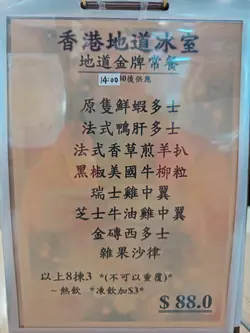 香港地道冰室
地道金牌常餐
14:00後供應
原隻鮮蝦多士
法式鴨肝多士
法式香草煎羊扒
黑椒美國牛柳粒
瑞士雞中翼
芝士牛油雞中翼
金磚西多士
雜果沙律
以上8揀3 *(不可以重覆)*
~熱飲 *凍飲加$3*
$ 88.0